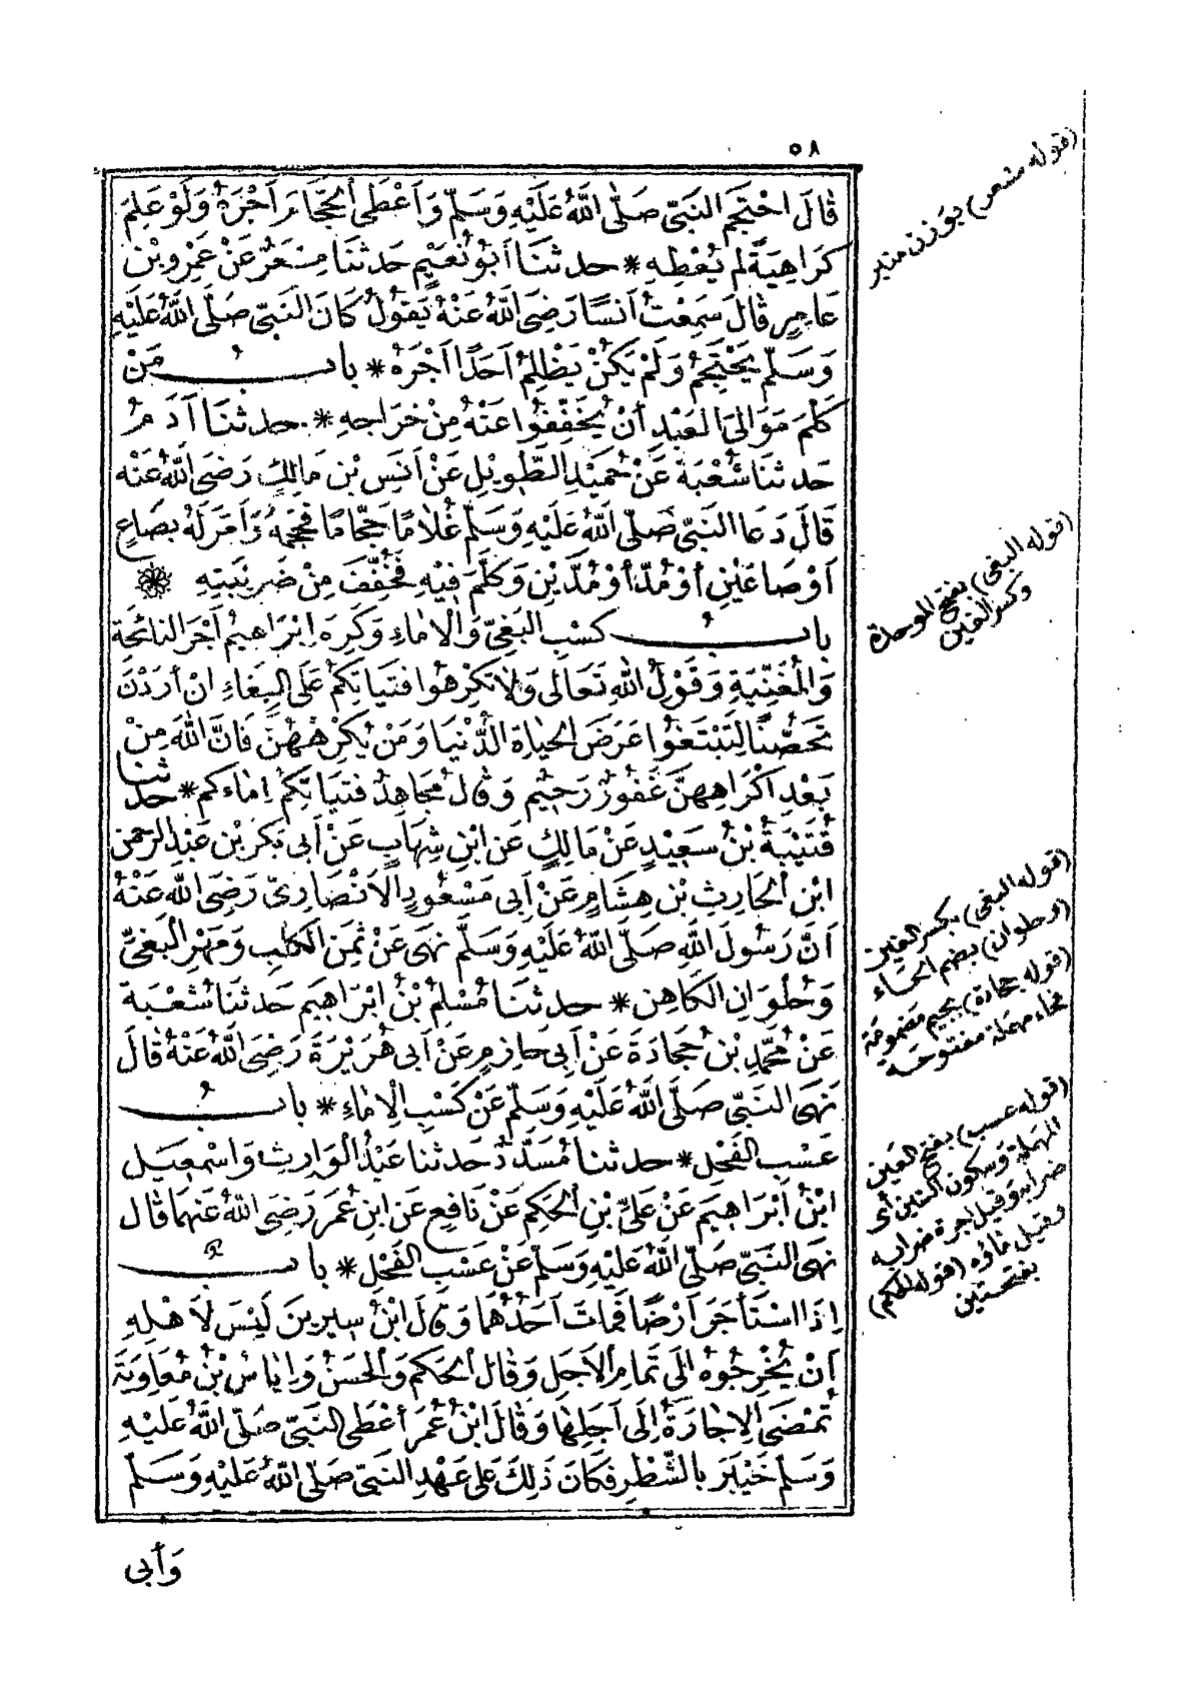 ٥٨
قَالَ احْتَجَمَ النَّبِيُّ صَلَّى اللَّهُ عَلَيْهِ وَسَلَّمَ وَأَعْطَى الْحَجَّامَ أَجْرَهُ وَلَوْ عَلِمَ
كَرَاهِيَةً لَمْ يُعْطِهِ * حدثنَا أَبُو نُعَيْمٍ حَدثنَا مِسْعَرٌ عَنْ عَمْرِو بْنِ
عَامِرٍ قَالَ سَمِعْتُ أَنَسًا رَضِيَ اللَّهُ عَنْهُ يَقُولُ كَانَ النَّبِيُّ صَلَّى اللَّهُ عَلَيْهِ
وَسَلَّمَ يَحْتَجِمُ وَلَمْ يَكُنْ يَظْلِمُ أَحَدًا أَجْرَهُ * بابُ مَنْ
كَلَّمَ مَوَالِيَ الْعَبْدِ أَنْ يُخَفِّفُوا عَنْهُ مِنْ خَرَاجِهِ * حدثنَا آدَمُ
حَدثنَا شُعْبَةُ عَنْ حُمَيْدٍ الطَّوِيلِ عَنْ أَنَسِ بْنِ مَالِكٍ رَضِيَ اللَّهُ عَنْهُ
قَالَ دَعَا النَّبِيُّ صَلَّى اللَّهُ عَلَيْهِ وَسَلَّمَ غُلَامًا حَجَّامًا فَحَجَمَهُ وَأَمَرَ لَهُ بِصَاعٍ
أَوْ صَاعَيْنِ أَوْ مُدٍّ أَوْ مُدَّيْنِ وَكَلَّمَ فِيهِ فَخُفِّفَ مِنْ ضَرِيبَتِهِ
بابُ كَسْبِ الْبَغِيِّ وَالْإِمَاءِ وَكَرِهَ إِبْرَاهِيمُ أَجْرَ النَّائِحَةِ
وَالْمُغَنِّيَةِ وَقَوْلُ اللَّهِ تَعَالَى وَلَا تُكْرِهُوا فَتَيَاتِكُمْ عَلَى الْبِغَاءِ إِنْ أَرَدْنَ
تَحَصُّنًا لِتَبْتَغُوا عَرَضَ الْحَيَاةِ الدُّنْيَا وَمَنْ يُكْرِهْهُنَّ فَإِنَّ اللَّهَ مِنْ
بَعْدِ إِكْرَاهِهِنَّ غَفُورٌ رَحِيمٌ وَقَالَ مُجَاهِدٌ فَتَيَاتِكُمْ إِمَاءَكُمْ * حدثنا
قُتَيْبَةُ بْنُ سَعِيدٍ عَنْ مَالِكٍ عَنِ ابْنِ شِهَابٍ عَنْ أَبِي بَكْرِ بْنِ عَبْدِ الرَّحْمَنِ
ابْنِ الْحَارِثِ بْنِ هِشَامٍ عَنْ أَبِي مَسْعُودٍ الْأَنْصَارِيِّ رَضِيَ اللَّهُ عَنْهُ
أَنَّ رَسُولَ اللَّهِ صَلَّى اللَّهُ عَلَيْهِ وَسَلَّمَ نَهَى عَنْ ثَمَنِ الْكَلْبِ وَمَهْرِ الْبَغِيِّ
وَحُلْوَانِ الْكَاهِنِ * حدثنَا مُسْلِمُ بْنُ إِبْرَاهِيمَ حَدثنَا شُعْبَةُ
عَنْ مُحَمَّدِ بْنِ جُحَادَةَ عَنْ أَبِي حَازِمٍ عَنْ أَبِي هُرَيْرَةَ رَضِيَ اللَّهُ عَنْهُ قَالَ
نَهَى النَّبِيُّ صَلَّى اللَّهُ عَلَيْهِ وَسَلَّمَ عَنْ كَسْبِ الْإِمَاءِ * بابُ
عَسْبِ الْفَحْلِ * حدثنا مُسَدَّدٌ حَدثنا عَبْدُ الْوَارِثِ وَإِسْمَعِيلُ
ابْنُ إِبْرَاهِيمَ عَنْ عَلِيِّ بْنِ الْحَكَمِ عَنْ نَافِعٍ عَنِ ابْنِ عُمَرَ رَضِيَ اللَّهُ عَنْهُمَا قَالَ
نَهَى النَّبِيُّ صَلَّى اللَّهُ عَلَيْهِ وَسَلَّمَ عَنْ عَسْبِ الْفَحْلِ * باب
إِذَا اسْتَأْجَرَ أَرْضًا فَمَاتَ أَحَدُهُمَا وَقَالَ ابْنُ سِيرِينَ لَيْسَ لِأَهْلِهِ
أَنْ يُخْرِجُوهُ إِلَى تَمَامِ الْأَجَلِ وَقَالَ الْحَكَمُ وَالْحَسَنُ وَإِيَاسُ بْنُ مُعَاوِيَةَ
تُمْضَى الْإِجَارَةُ إِلَى أَجَلِهَا وَقَالَ ابْنُ عُمَرَ أَعْطَى النَّبِيُّ صَلَّى اللَّهُ عَلَيْهِ
وَسَلَّمَ خَيْبَرَ بِالشَّطْرِ فَكَانَ ذَلِكَ عَلَى عَهْدِ النَّبِيِّ صَلَّى اللَّهُ عَلَيْهِ وَسَلَّمَ
وَأَبِي
(قوله مسعر) بوزن منبر
(قوله البغى) بفتح الموحدة
وكسر الغين
(قوله البغى) بكسر الغين
(وحلوان) بضم الحاء
(قوله جحادة) بجيم مضمومة
فحاء مهملة مفتوحة
(قوله عسب) بفتح العين
المهملة وسكون السين أى
ضرابه وقيل اجرة ضرابه
وقيل ماؤه (قوله الحكم)
بفتحتين